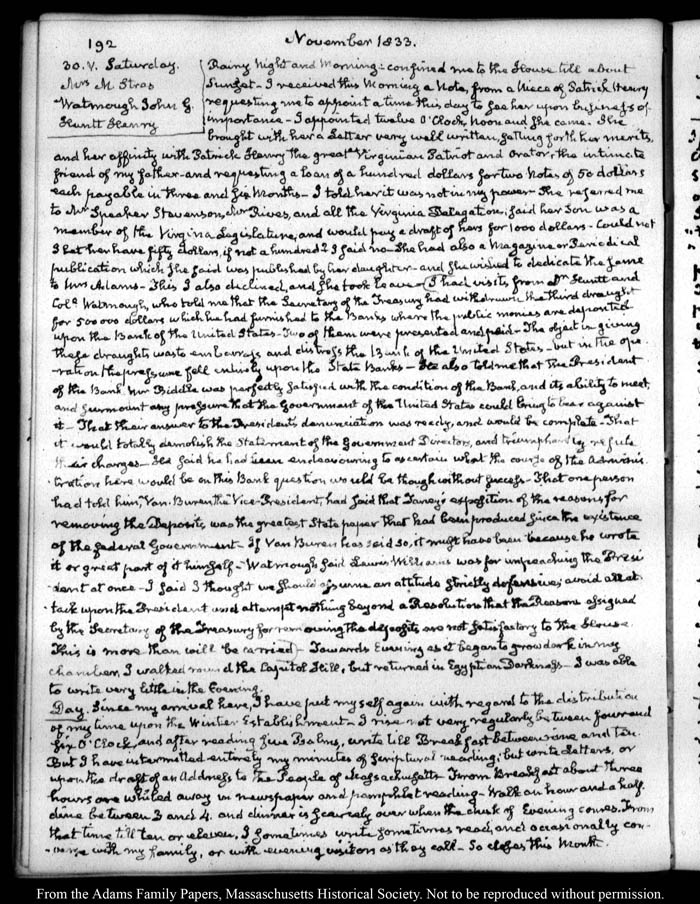 192
November 1833.
30. V. Saturday.
Mrs M. Stras
Watmough John G.
Huntt Henry
Rainy Night and Morning: confined me to the House till about
Sunset - I received this Morning a Note, from a Niece of Patrick Henry
requesting me to appoint a time this day to see her upon business of
importance - I appointed twelve O'Clock, Noon and she came. She
brought with her a Letter very well written, setting forth her merits,
and her affinity with Patrick Henry the great Virginian Patriot and Orator, the intimate
friend of my father - and requesting a loan of a hundred dollars for two Notes of 50 dollars
each payable in three and six Months - I told her it was not in my power - She referred me
to Mr Speaker Stevenson, Mr Rives, and all the Virginia Delegation, said her Son was a
member of the Virginia Legislature, and would pay a draft of hers for 1000 dollars - Could not
I let her have fifty dollars, if not a hundred? I said no - She had also a Magazine or Periodical
publication which she said was published by her daughter - and she wished to dedicate the same
to Mrs Adams - This I also declined, and she took leave - I had visits from Dr Huntt and
Coll. Watmough, who told me that the Secretary of the Treasury had withdrawn the third draught
for 500 000 dollars which he had furnished to the Banks where the public monies are deposited
upon the Bank of the United States - Two of them were presented and paid - The object in giving
these draughts was to embarrass and distress the Bank of the United States - but in the ope-
ration the pressure fell entirely upon the State Banks - He also told me that the President
of the Bank Mr Biddle was perfectly satisfied with the condition of the Bank, and its ability to meet,
and surmount any pressure that the Government of the United States could bring to bear against
it - That their answer to the President's denunciation was ready, and would be complete - That
it would totally demolish the Statement of the Government Directors, and triumphantly refute
their charges - He said he had been endeavouring to ascertain what the course of the Adminis-
tration here would be on this Bank question would be though without success - That one person
had told him, Van Buren the Vice-President, had said that Taney's exposition of the reasons for
removing the Deposits was the greatest State paper that had been produced since the existence
of the federal Government - If Van Buren has said so, it must have been because he wrote
it or great part of it himself - Watmough said Lewis Williams was for impeaching the Presi-
dent at once - I said I thought we should assume an attitude strictly defensive, avoid all at-
tack upon the President and attempt nothing beyond a Resolution that the Reasons assigned
by the Secretary of the Treasury for removing the deposits are not satisfactory to the House.
This is more than will be carried - Towards Evening as it began to grow dark in my
chamber, I walked round the Capitol Hill, but returned in Egyptian Darkness - I was able
to write very little in the Evening.
Day. Since my arrival here, I have put myself again with regard to the distribution
of my time upon the Winter Establishment - I rise not very regularly between four and
six O'Clock, and after reading five Psalms, write till Breakfast between nine and ten.
But I have intermitted entirely my minutes of Scriptural reading; but write Letters, or
upon the draft of an Address to the People of Massachusetts - From Breakfast about three
hours are whiled away in newspaper and pamphlet reading - Walk an hour and a half.
dine between 3 and 4. and dinner is scarcely over when the dusk of Evening comes. From
that time till ten or eleven, I sometimes write sometimes read, and occasionally con-
verse with my family, or with evening visitors as they call - So closes this Month.
From the Adams Family Papers, Massachusetts Historical Society. Not to be reproduced without permission.